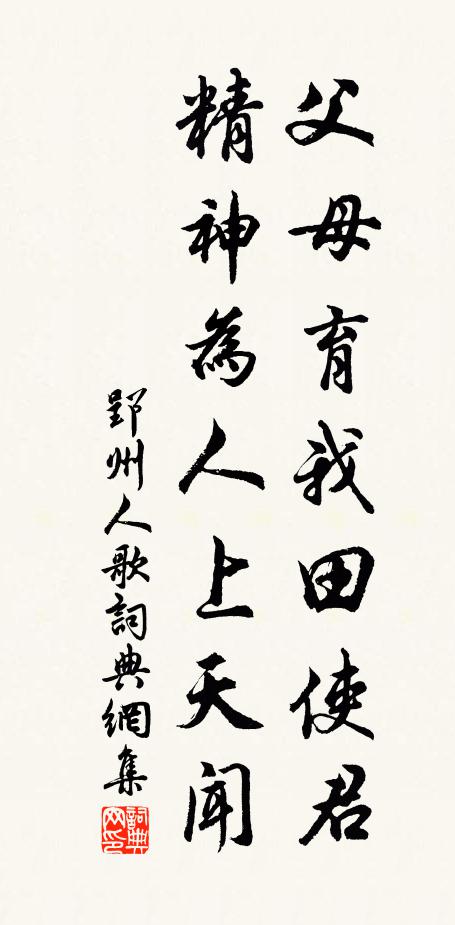 父母育我田使君
精神為人上天聞
郢州人歌詞典網集
詞典网印